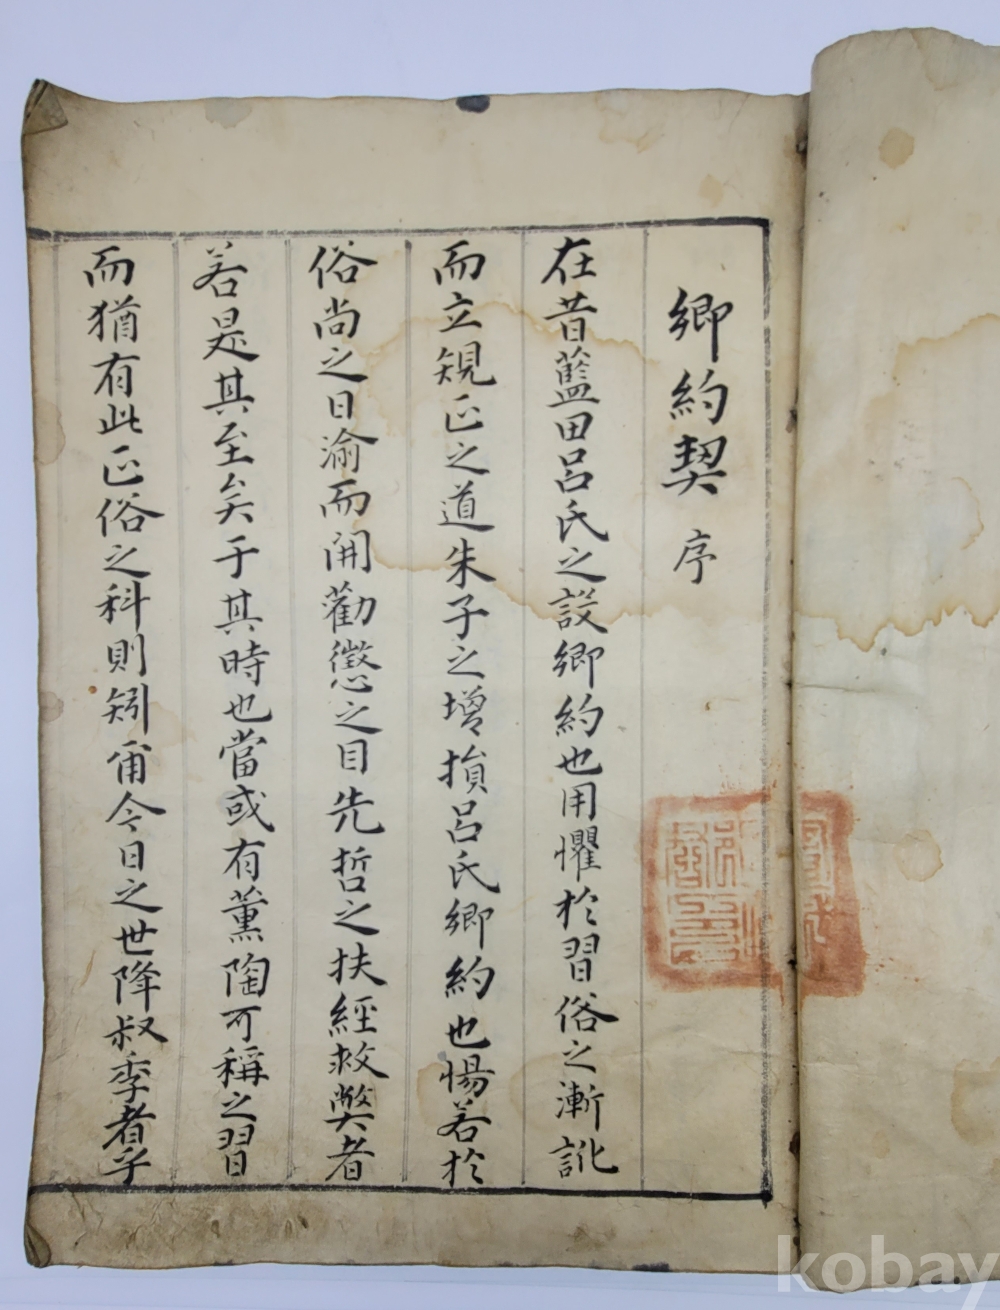 鄕約契 序
在昔藍田呂氏之設鄕約也用懼於習俗之漸訛
而立規正之道朱子之增損呂氏鄕約也惕若於
俗尚之日渝而開勸懲之目先哲之扶經救弊者
若是其至矣于其時也當或有薰陶可稱之習
而猶有此正俗之科則矧爾今日之世降叔季者乎
kobay